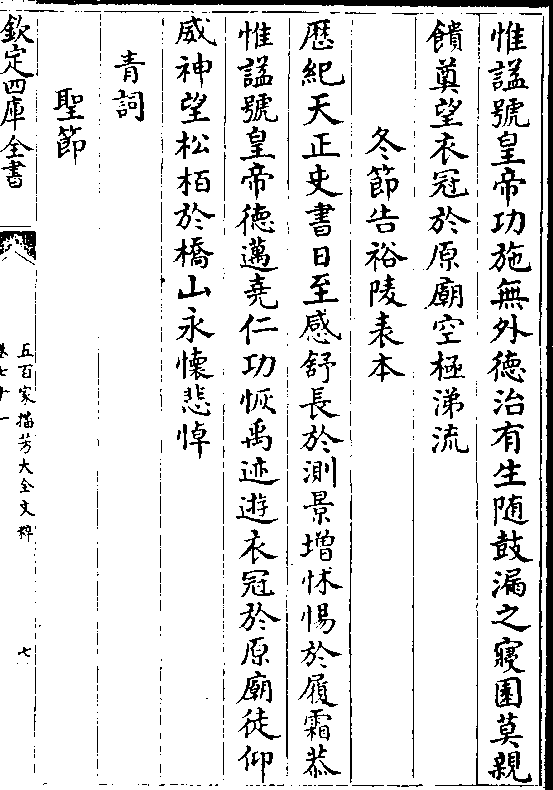 惟諡號皇帝功施無外德治有生随鼓漏之寢園莫親
饋奠望衣冠於原廟空極涕流
冬節告裕陵表本
厯紀天正史書日至感舒長於測景增怵惕於履霜恭
惟諡號皇帝德邁堯仁功恢禹迹遊衣冠於原廟徒仰
威神望松栢於橋山永懷悲悼
青詞
聖節
欽定四庫全書
五百家播芳大全文粹
卷七十一
七